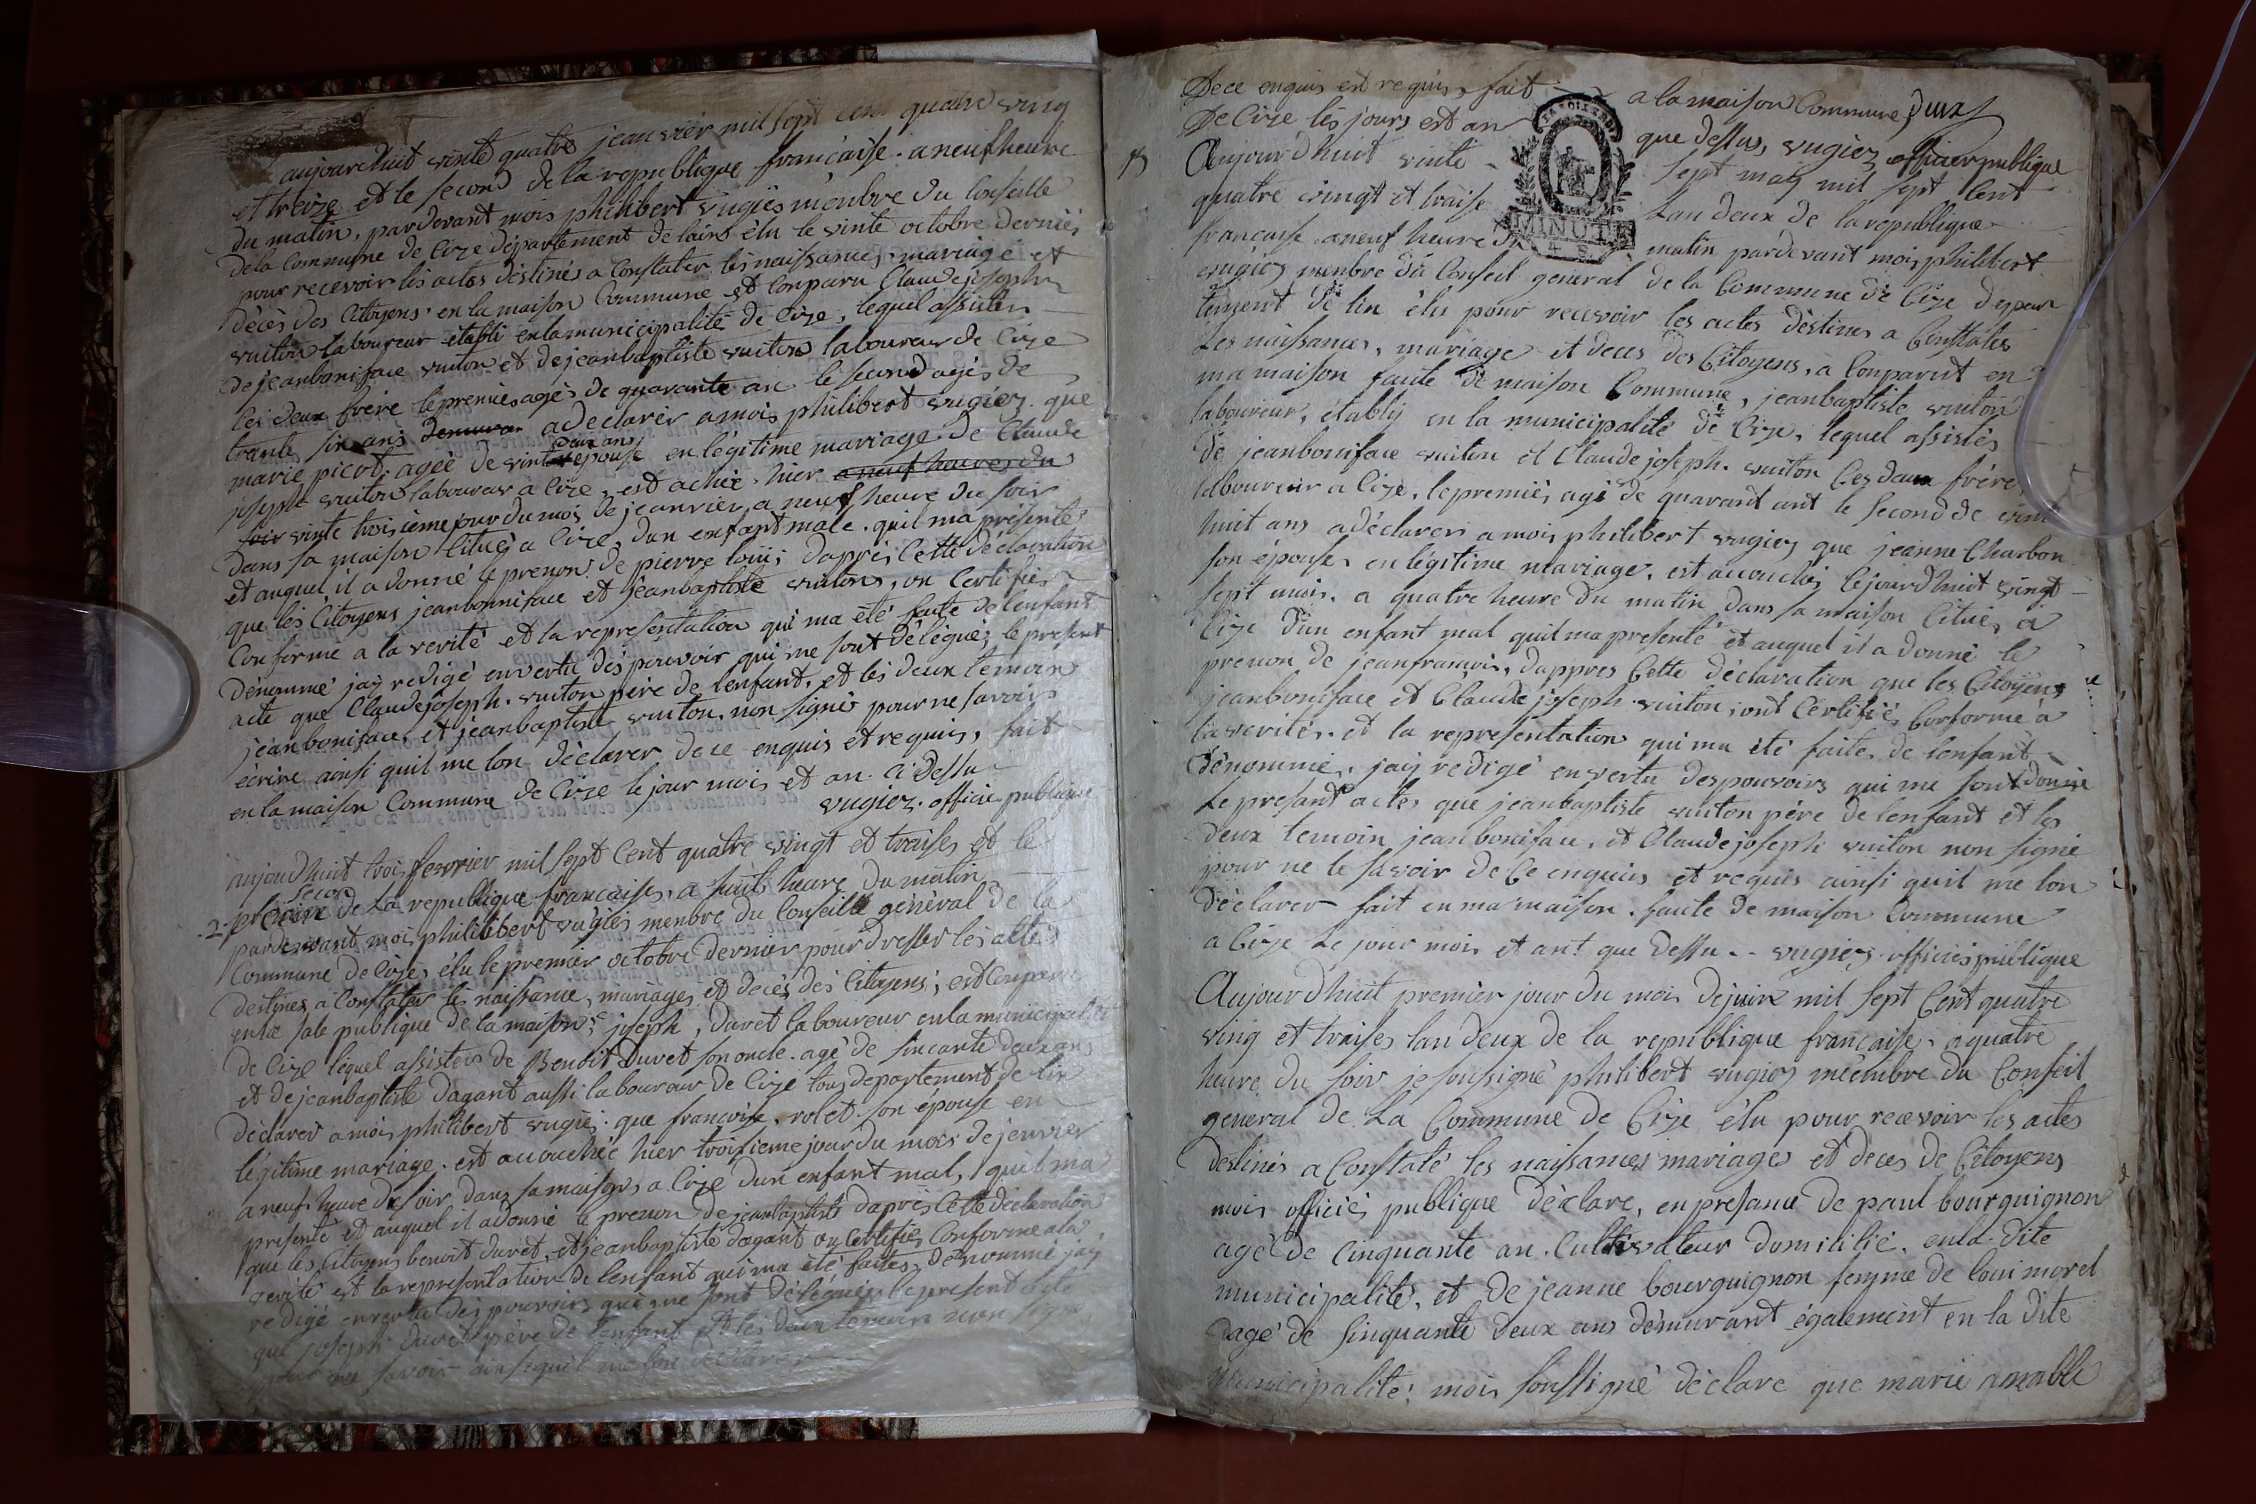 aujourdhuit vinte quatre jeanvier mil sept cent quatre ving
et treize et le second de la republique française. a neuf heure
du matin, pardevant mois philibert vugies menbre du Conseille
de la Commune de Cize département de lains élu le vinte octobre dernies
pour recevoir lés actes déstinés a Constater lés naissances, mariage et
décès des Citoyens en la maison Commune est Conparu Claudejoseph
vuiton laboureur établi en la municipalité de Cize, lequel assistes
de jeanboniface vuiton et de jeanbaptiste vuiton laboureur de Cize
lés deux frére le premies agés de quarante an le second agés de
trante six ans demuran a déclarér a mois philibert vugiez que
marie picot agéé de vinte deux ans épouse en légitime mariage de Claude
joseph vuiton laboureur a Cize, est achée hier a neuf heures du
soir vinte troisiemejour du mois de jeanvier, a neuf heure du soir
dans sa maison Cituéé a Cize, dun enfant male. quil ma présenté
et auquel il a donné le prenon de pierre louis daprés Cette déclaration
que lés Citoyens jeanbonniface et jeanbaptiste vuiton, on Certifies
Conforme a la verité et la representation qui ma été faite de lenfant
dénommé jaÿ redigé en vertu dés pouvoir qui me sont délégués le present
acte que Claudejoseph. vuiton pére de lenfant, et lés deux temoins
jéanboniface et jéanbaptiste vuiton. non signés pour ne savoirs
écrire ainsi quil me lon déclarer de ce enquis et requis, fait
en la maison Commune de Cize le jour mois et an. Ci dessu
vugiez. officie publique
aujoudhuit trois fevrier mil sept Cent quatre vingt et traises et le
second
premiere de la republique francaise, a huit heure du matin
.2. pardevant mois philibert vugies menbre du Conseille général de la
Commune de Cize, élu le premiér octobre dernier pour dresser lés actes
destinés a Constater lés naissance, mariages et decés dés Citoyens; est Conparu
en la sale publique de la maison, joseph, duret laboureur en la municipalité
de Cize léquel assistes de Benoit Duret son oncle. agé de sincante deux ans
et de jeanbaptiste dagant aussi laboureur de Cize tous departement de lin
déclarér a mois philibert vugies. que francoise. rolet. son épouse en
légitime mariage. est acouchéé hier troisieme jour du mois de jenvier
a neuf heure de soir dans sa maison, a Cize dun enfant mal, quil ma
presenté et auquel il a donné le prenon de jeanbaptiste daprés Cette déclaration
que lés Citoyens benoit duret, et jeanbaptiste dagant on Certifiés Conforme a la
verité et la representation de lenfant qui ma été faites, dénommé jaÿ
redigé en vertu dés pouvoirs qui me sont délégués le present acte
que joseph duret pére de lenfant et lés deux temoin non signé
pour ne savoir ainsi quil me lon déclarer
De ce enquis est requis, fait a la maison Commune, Duix
De Cize lés jours est an que dessus, vugiez officier publique
Aujourdhuit vinte sept maÿ mil sept Cent
quatre vingt et traise Lan deux de la republique
francaise. a neuf heure du matin pardevant mois philibert
MINUTE
vugiez menbre du Conseil general de la Commune de Cize depar
tement de lin élu pour recevoir les actes déstines a Constates
Les naissances, mariage et deces des Citoyens, a Conparut en
ma maison faute de maison Commune, jeanbaptiste vuiton
laboureur, établis en la municipalité de Cize, lequel assistés
de jeanboniface vuiton et Claudejoseph. vuiton Ces deux frére
laboureur a Cize, le premiés agé de quarant ant le second de vint
huit ans a déclarer a mois philibert vugiez que jeanne Charbon
son épouse, en légitime mariage, est acouchés lejourdhuit vingt
sept mois. a quatre heure du matin dans sa maison Cituée a
Cize d'un enfant mal quil ma presenté et auquel il a donné le
prenon de jeanfrancois, dappres Cette déclaration que les Citoyens
jeanboniface et Claude joseph vuiton, ont Certifiés Conforme a
la verités. et la representation qui ma été faites de lenfant
dénommé, jaÿ redigé en vertu des pouvoirs qui me sont donne
Le presant actes que jeanbaptiste vuiton pére de lenfant et les
deux temoin jeanboniface, et Claudejoseph vuiton non signé
pour ne le savoir de Ce enquis et requis ainsi quil me lon
déclarer fait en ma maison. faute de maison Commune
a Cize Le jour mois et ant que dessu .. vugiez officiés publique
Aujourd'huit premier jour du mois dejuin mil sept Cent quatre
ving et traises lan deux de la republique francaise, a quatre
heure du soir je sousigné philibert vugiez méembre du Conseil
general de La Commune de Cize élu pour recevoir les actes
destinés a Constaté les naissances mariages et déces de Citoyens
mois officiés publique déclare, en presance de paul bourguignon
agé de Cinquante an. Cultivateur domicilié. en la dite
municipalités. et de jeanne bourguignon femme de loui morel
dagé de sinquante deux ans démurant également en la dite
municipalité: mois soussigné déclare que marie amable